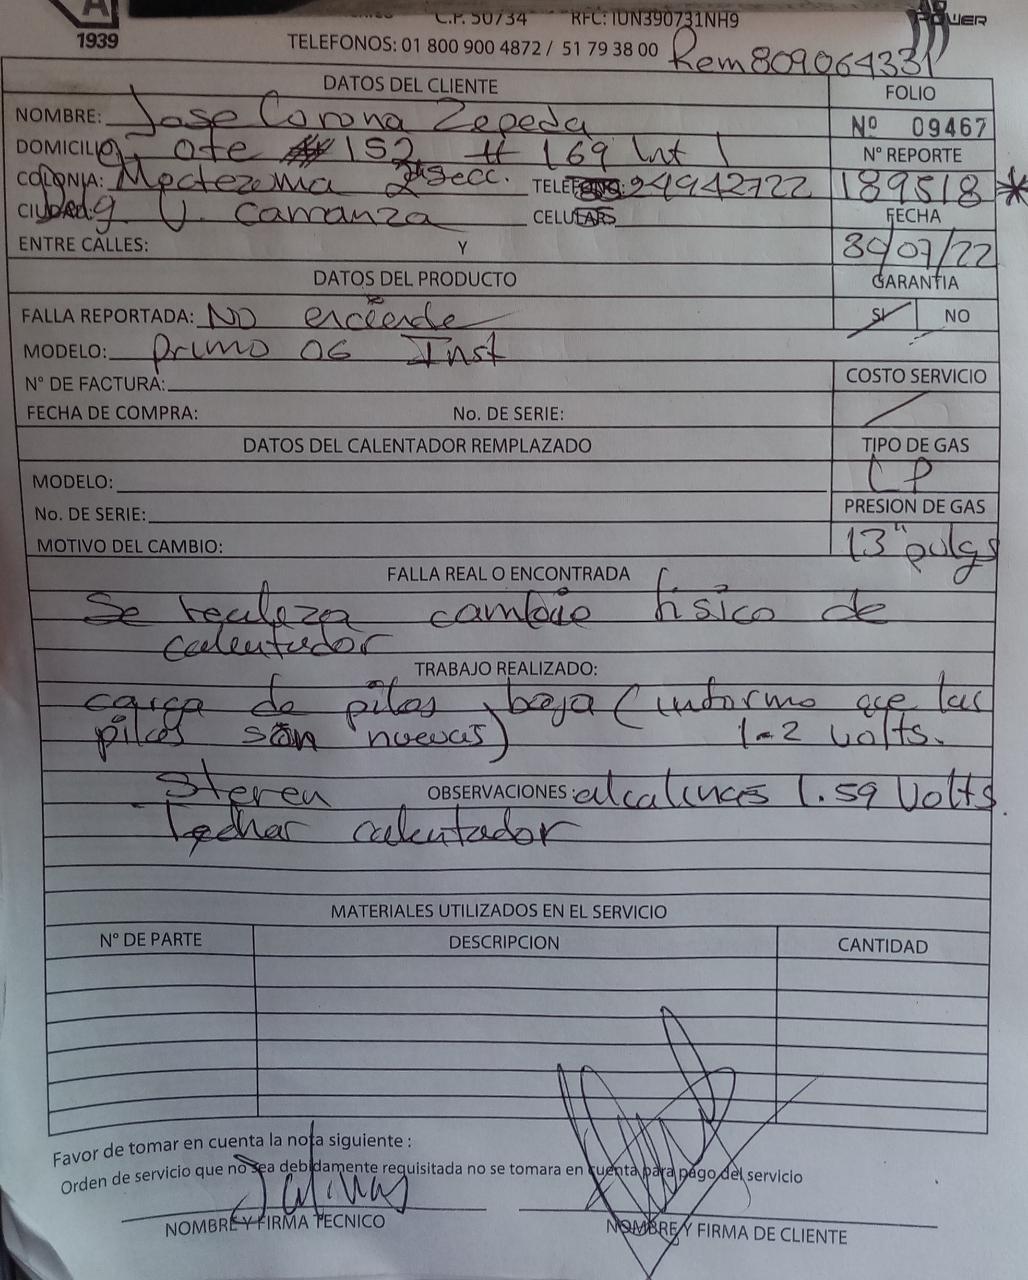 A
1939
C.P. 50734 RFC: IUN390731NH9
POWER
TELEFONOS: 01 800 900 4872 / 51 79 38 00 Rem809064331
DATOS DEL CLIENTE
FOLIO
NOMBRE: Jose Corona Zepeda
Nº 09467
DOMICILIO: ote 152 # 169 Int 1
Nº REPORTE
COLONIA: Moctezoma 2ª secc. TELEFONO: 24942722 189518 *
CIUDAD: V. Carranza CELULAR:
FECHA
ENTRE CALLES: Y
30/07/22
DATOS DEL PRODUCTO
GARANTIA
FALLA REPORTADA: NO enciende
SI NO
MODELO: primo 06 Inst
Nº DE FACTURA:
COSTO SERVICIO
FECHA DE COMPRA: No. DE SERIE:
DATOS DEL CALENTADOR REMPLAZADO
TIPO DE GAS
MODELO:
LP
No. DE SERIE:
PRESION DE GAS
MOTIVO DEL CAMBIO:
13" pulgs
FALLA REAL O ENCONTRADA
Se realiza cambio fisico de
calentador
TRABAJO REALIZADO:
carga de pilas baja (informo que las
pilas son nuevas) 1-2 volts.
Steren OBSERVACIONES: alcalinas 1.59 Volts
calentador
MATERIALES UTILIZADOS EN EL SERVICIO
Nº DE PARTE DESCRIPCION CANTIDAD
Favor de tomar en cuenta la nota siguiente :
Orden de servicio que no sea debidamente requisitada no se tomara en cuenta para pago del servicio
Salinas
NOMBRE Y FIRMA TECNICO
NOMBRE Y FIRMA DE CLIENTE